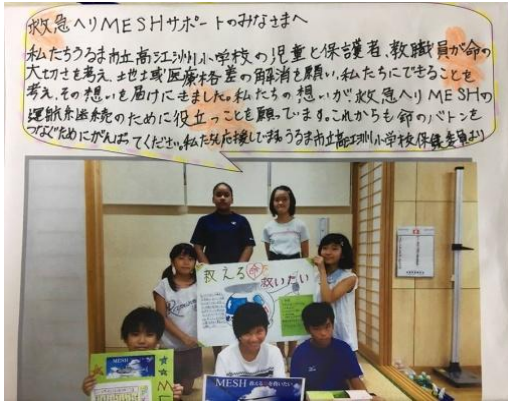 救急ヘリMESHサポートのみなさまへ
私たちうるま市立高江洲小学校の児童と保護者、教職員が命の
大切さを考え、地域医療格差の解消を願い、私たちにできることを
考え、その想いを届けにきました。私たちの想いが救急ヘリMESHの
運航継続のために役立つことを願っています。これからも命のバトンを
つなぐためにがんばってください。私たちも応援しています うるま市立高江洲小学校保健委員より
救える命 救いたい
MESH 救える命を救いたい